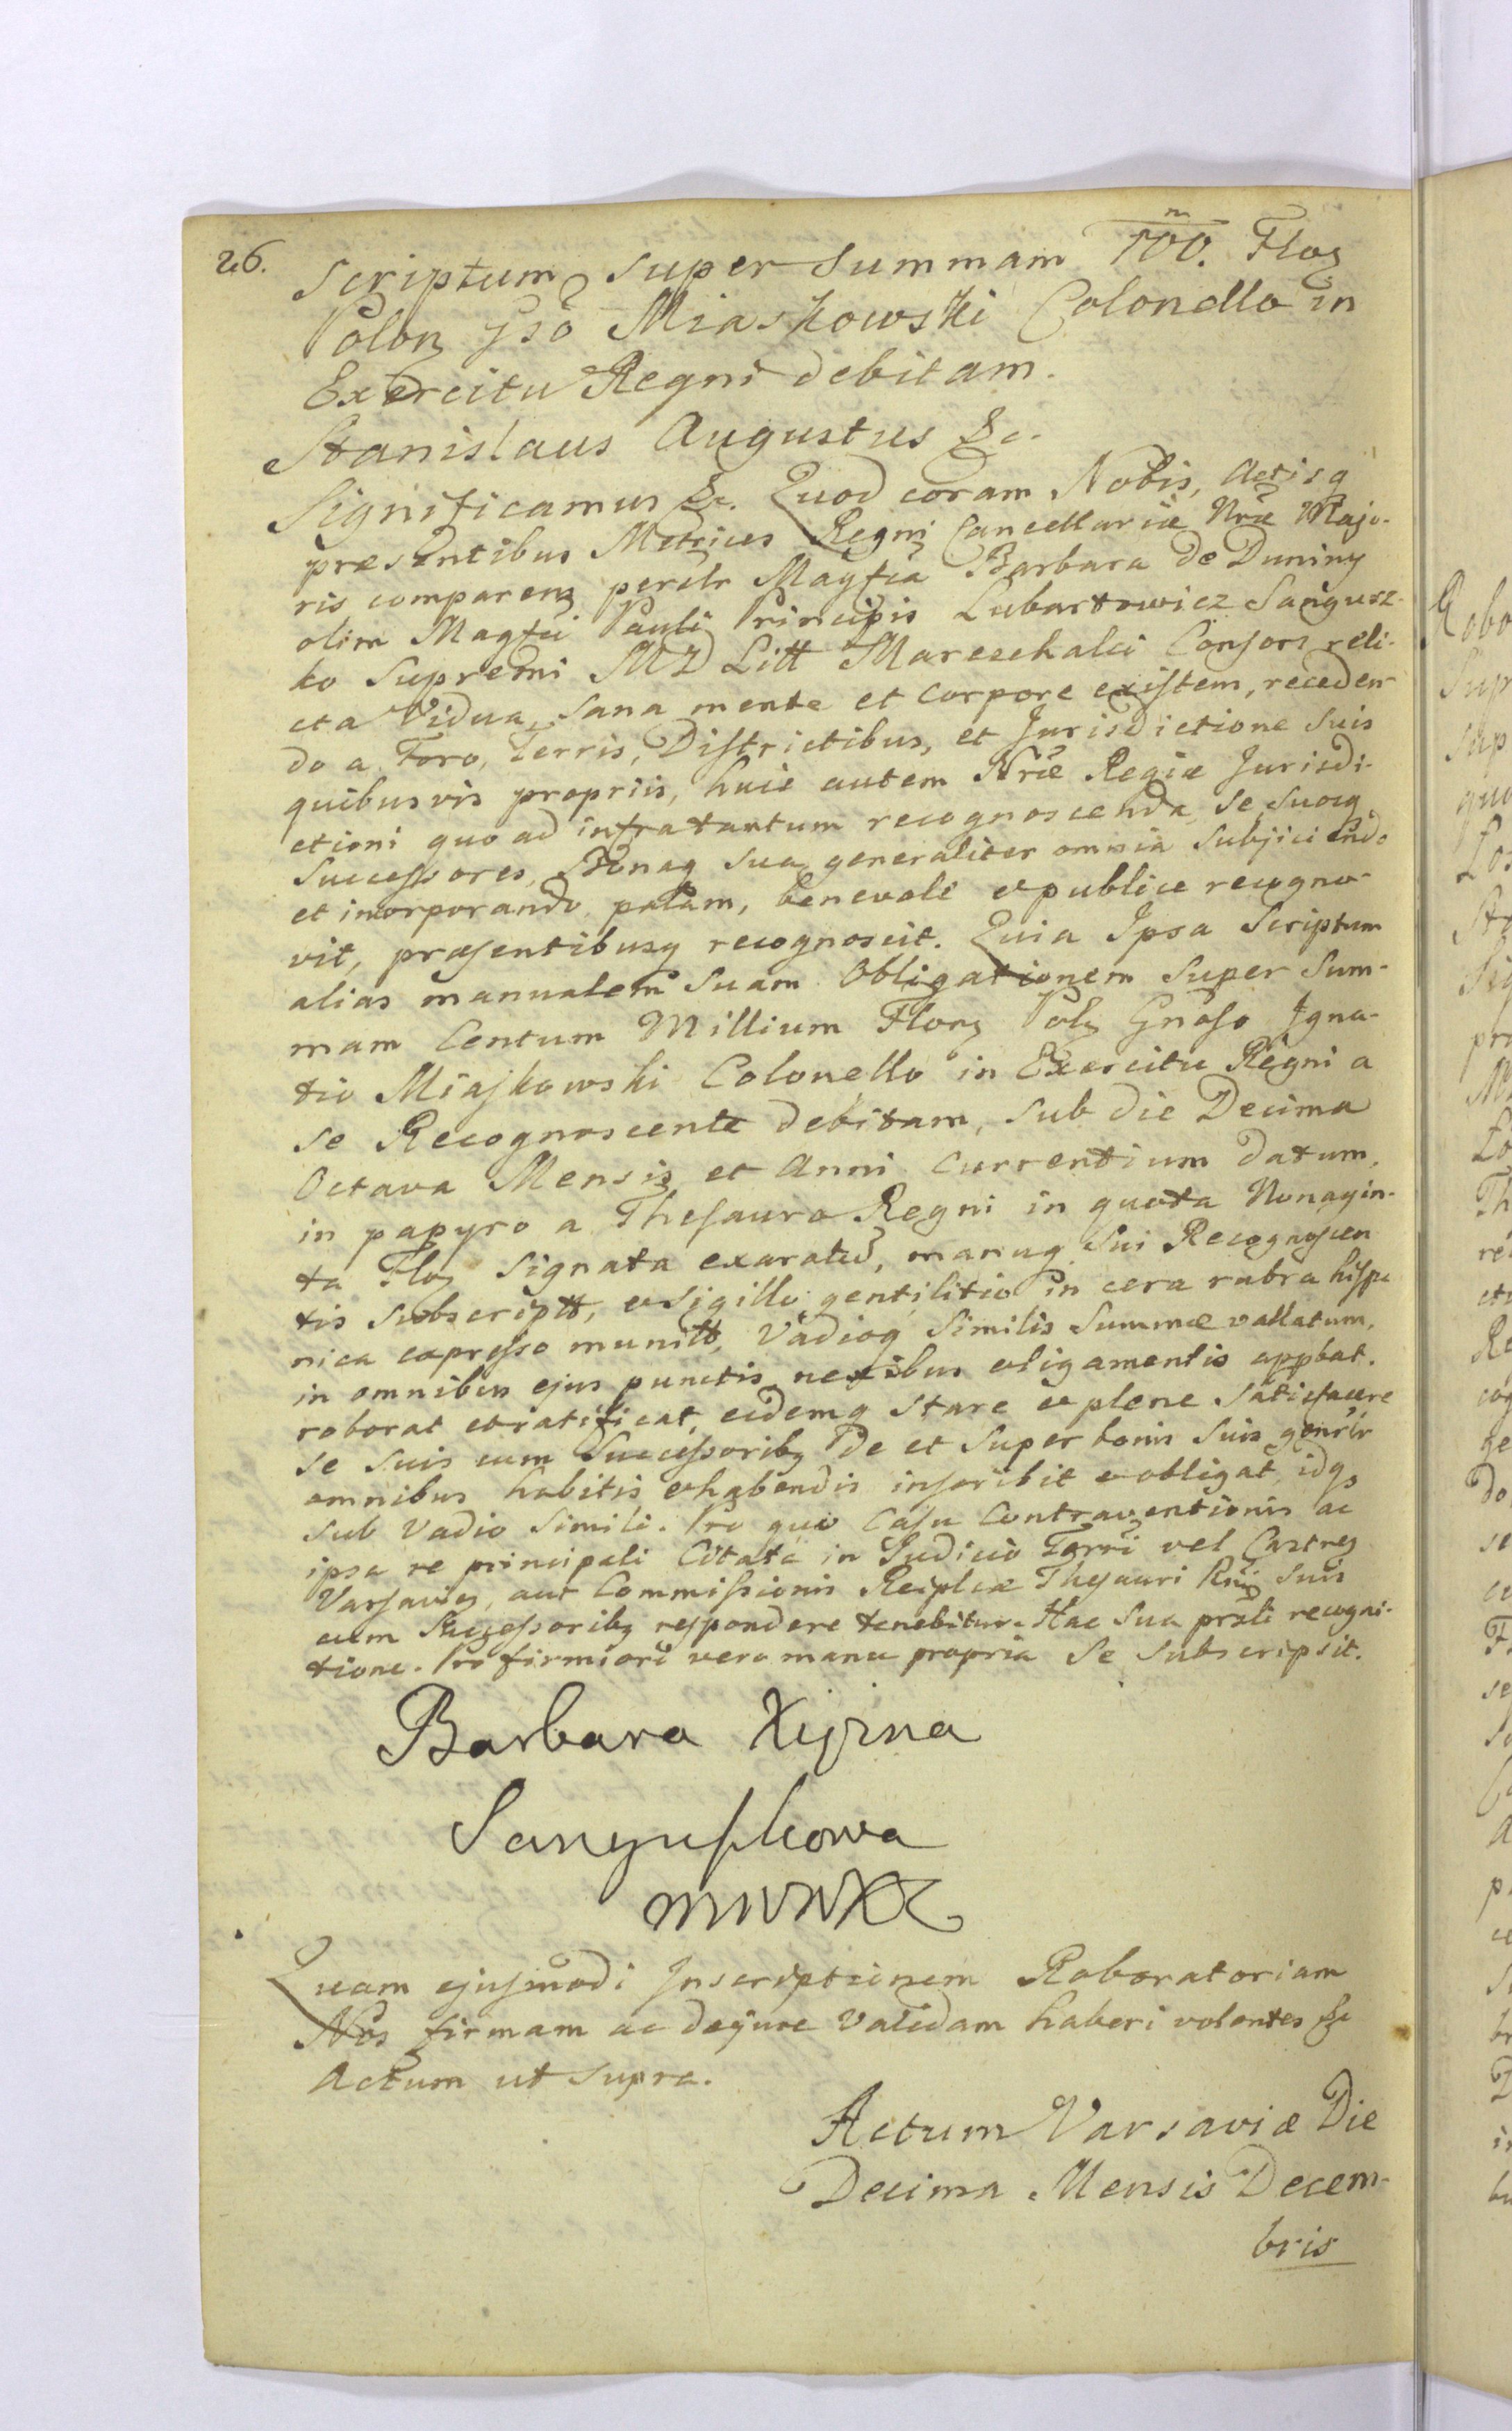 26.
Scriptum super Summam 100. Floꝝ
Polon Gso Miaskowski Colonello in
Exercitu Regni debitam.
Stanislaus Augustus &c.
Significamus &c. Quod coram Nobis, Actisq
præsentibus Metrices Regni Cancellariæ Nræ Majo-
ris comparens perslr Magfca Barbara de Duniny
olim Magfci Pauli Principis Lubartowicz Sangusz-
ko Supremi MD Litt Mareschalci Consors reli-
cta Vidua, Sana mente et corpore existem, receden-
do a Foro, Terris, Districtibus, et Jurisdictione Suis
quibusvis propriis, huic autem Nræ Regiæ Jurisdi-
ctioni quo ad infratantum recognoscenda, Se Suosq
Successores, Bonaq Sua generaliter omnia Subjiciendo
et incorporando, palam, benevole et publice recogno-
vit, præsentibusq recognoscit. Quia Ipsa Scriptum
alias manualem Suam Obligationem Super Sum-
mam Centum Millium Florꝝ Polꝝ Gnoso Igna-
tio Miaskowski Colonello in Exercitu Regni a
Se Recognoscente debitam, Sub die Decima
Octava Mensis et Anni currentium datum,
in papyro a Thesauro Regni in quota Nonagin-
ta Floꝝ Signata exaratũ, manuq Sui Recognoscen
tis Subscriptt, et Sigillo gentilitio in cera rubra hispa
nica expresso munitt, Vadioq Similis Summæ vallatum,
in omnibus ejus punctis nexibus et ligamentis appbat.
roborat et ratificat, eidemq Stare et plene Satisfacere
Se Suis cum Successoribꝫ de et Super bonis Suis genrlr
omnibus habitis et habendis inscribit et obligat, idqꝫ
Sub Vadio Simili. Pro quo Casu Contraventionis ac
ipsa re principali Citata in Judicio Terri vel Castreꝝ
Varsavieꝝ, aut Commissionis Reiplcæ Thesauri Rni Suis
cum Successoribꝫ respondere tenebitur. Hac Sua prnti recogni-
tione. Pro firmiori vero manu propria Se Subscripsit.
Barbara Xiężna
Sanguszkowa
Quam ejusmodi Inscriptionem Roboratoriam
Nos firmam ac dejure Validam haberi volentes &c
Actum ut Supra.
Actum Varsaviæ Die
Decima Mensis Decem-
bris